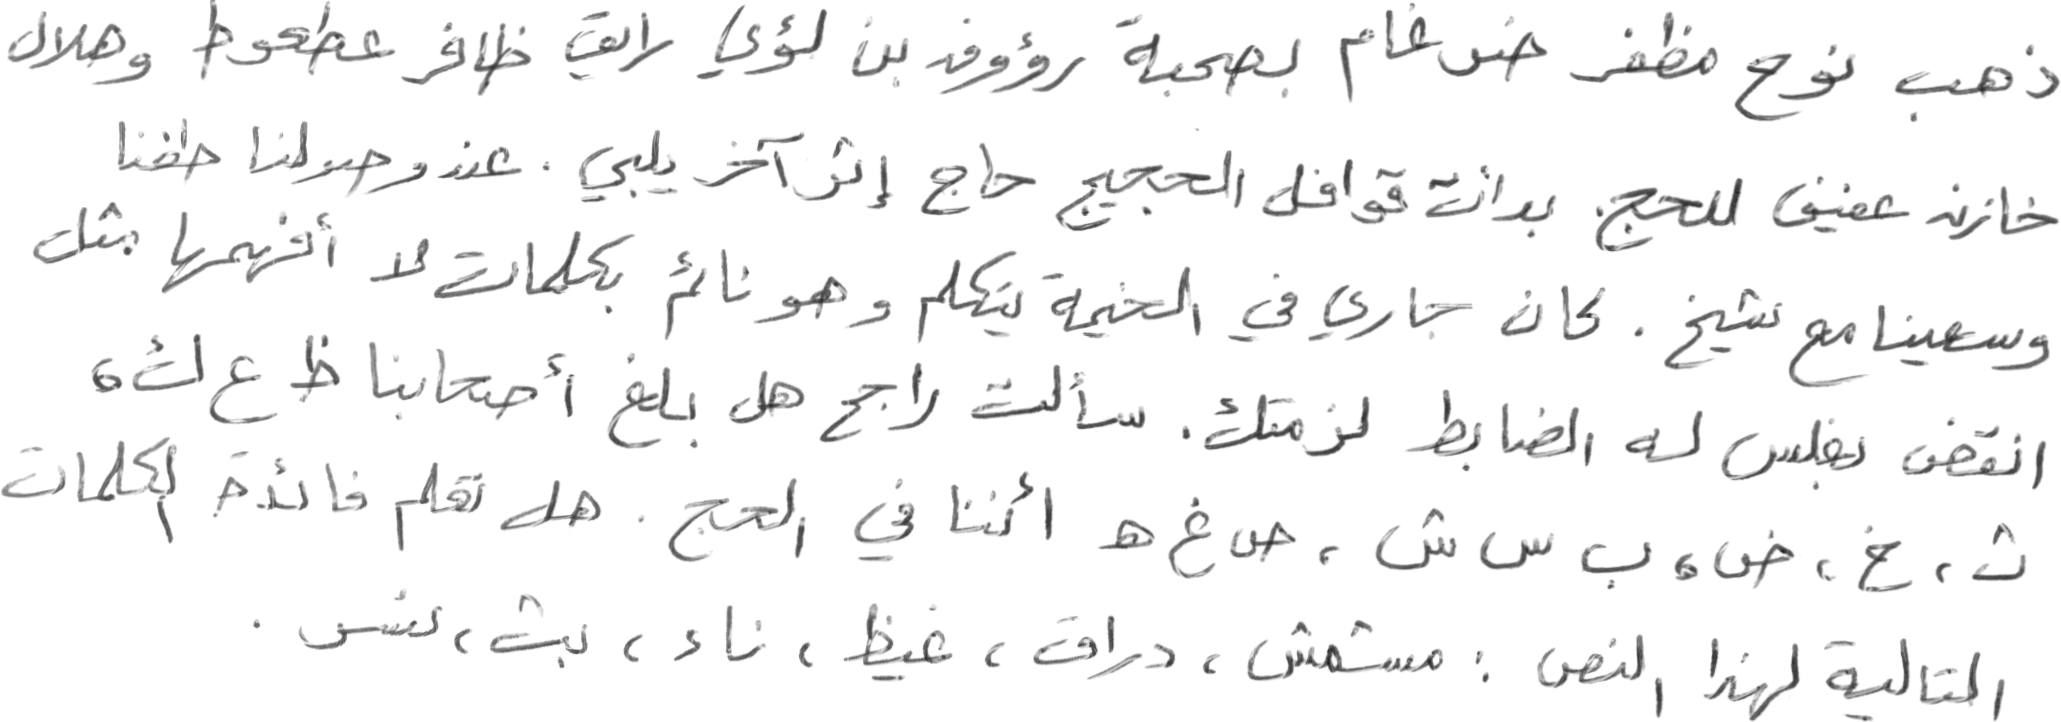 ذهب نوح مظفر ضرغام بصحبة رؤوف بن لؤي رائق ظافر عطعوط وهلال
خازن عفيف للحج. بدأت قوافل الحجيج حاج إثر آخر يلبي. عند وصولنا طفنا
وسعينا مع شيخ. كان جاري في الخيمة يتكلم وهو نائم بكلمات لا أفهمها مثل
انقض بفلس له الضابط لزمتك. سألت راجح هل بلغ أصحابنا ظ ع ك،
ث، خ، ض، ب س ش، ص غ ه أئننا في الحج. هل تعلم فائدة الكلمات
التالية لهذا النص: مستمش، دراق، غيظ، ناء، بث، نسس.